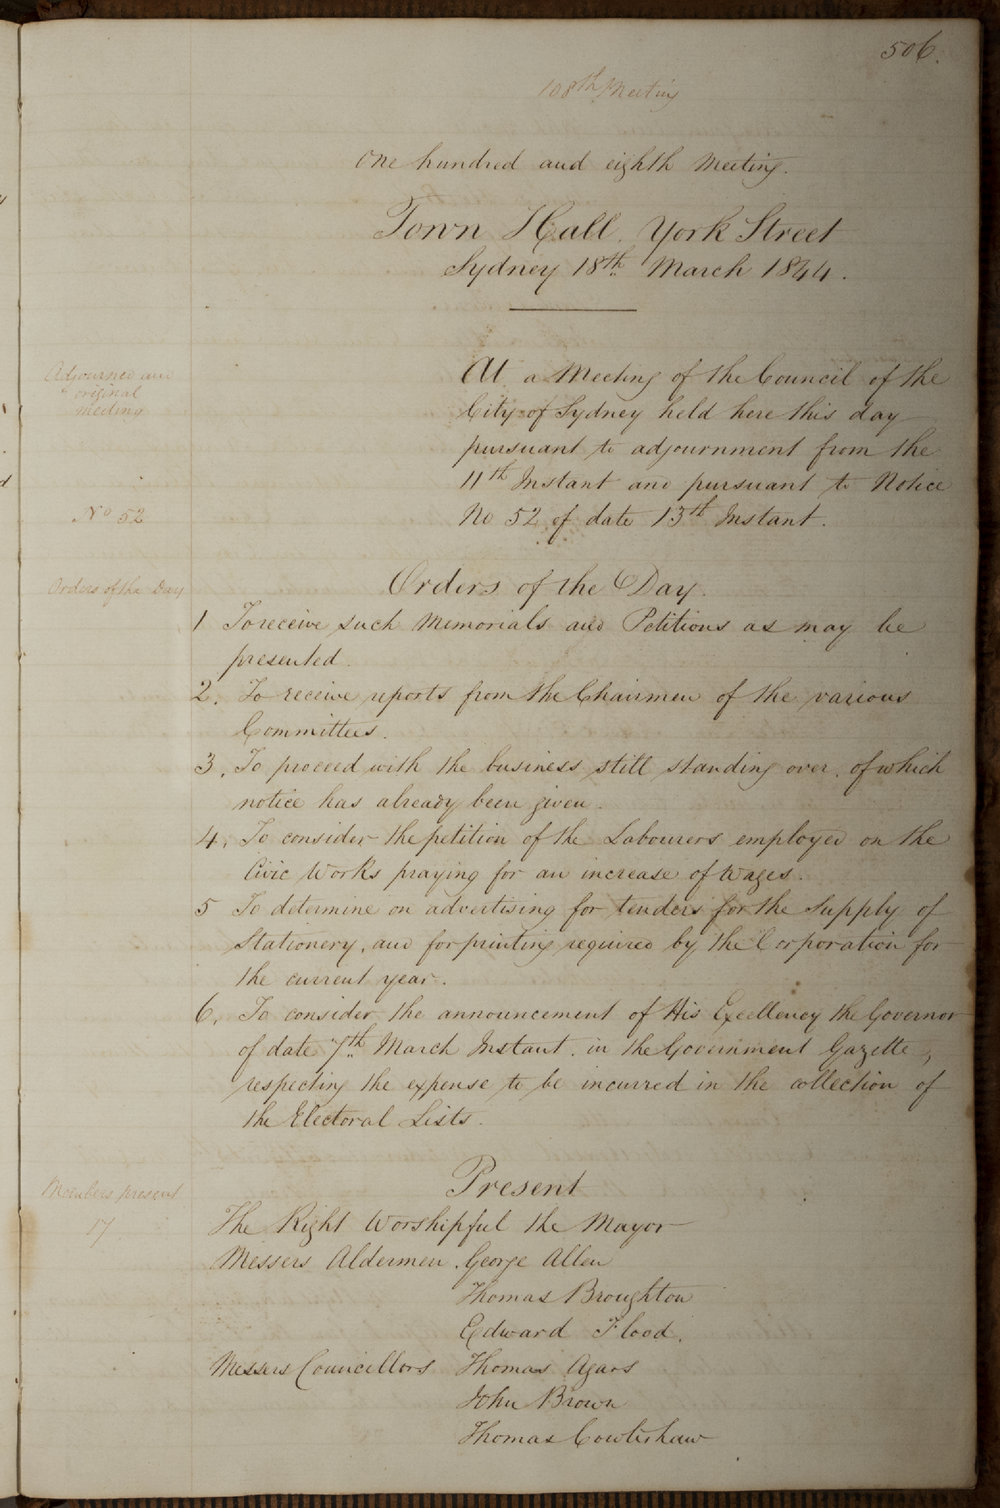 506.
108th Meeting
One hundred and eighth Meeting.
Town Hall, York Street
Sydney 18th March 1844.
Adjourned and
original
meeting
At a Meeting of the Council of the
City of Sydney held here this day
pursuant to adjournment from the
11th Instant and pursuant to Notice
No 52
No 52 of date 13th Instant.
Orders of the Day
Orders of the Day.
1 To receive such Memorials and Petitions as may be
presented.
2. To receive reports from the Chairmen of the various
Committees.
3. To proceed with the business still standing over, of which
notice has already been given.
4. To consider the petition of the Labourers employed on the
Civic Works praying for an increase of Wages.
5 To determine on advertising for tenders for the Supply of
Stationery, and for printing required by the Corporation for
the current year.
6. To consider the announcement of His Excellency the Governor
of date 7th March Instant, in the Government Gazette,
respecting the expense to be incurred in the collection of
the Electoral Lists.
Members present
17
Present
The Right Worshipful the Mayor
Messers Aldermen. George Allen
Thomas Broughton
Edward Flood.
Messers Councillors Thomas Agars
John Brown
Thomas Cowlishaw